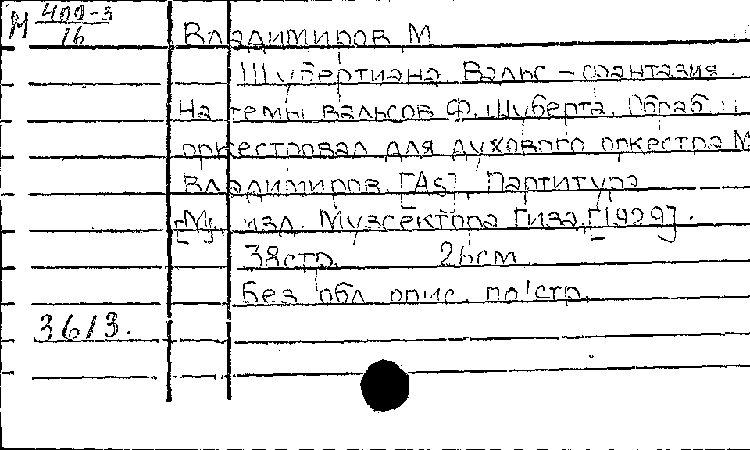 М 400-3
16
Владимиров М
Шубертиана. Вальс – фантазия
на темы вальсов Ф. Шуберта. Обраб. и
оркестровал для духового оркестра М
Владимиров. [As]. Партитура
[М], изд. Музсектора Гиза, [1929].
38стр. 26см
Без обл. опис. по 1 стр.
3613.